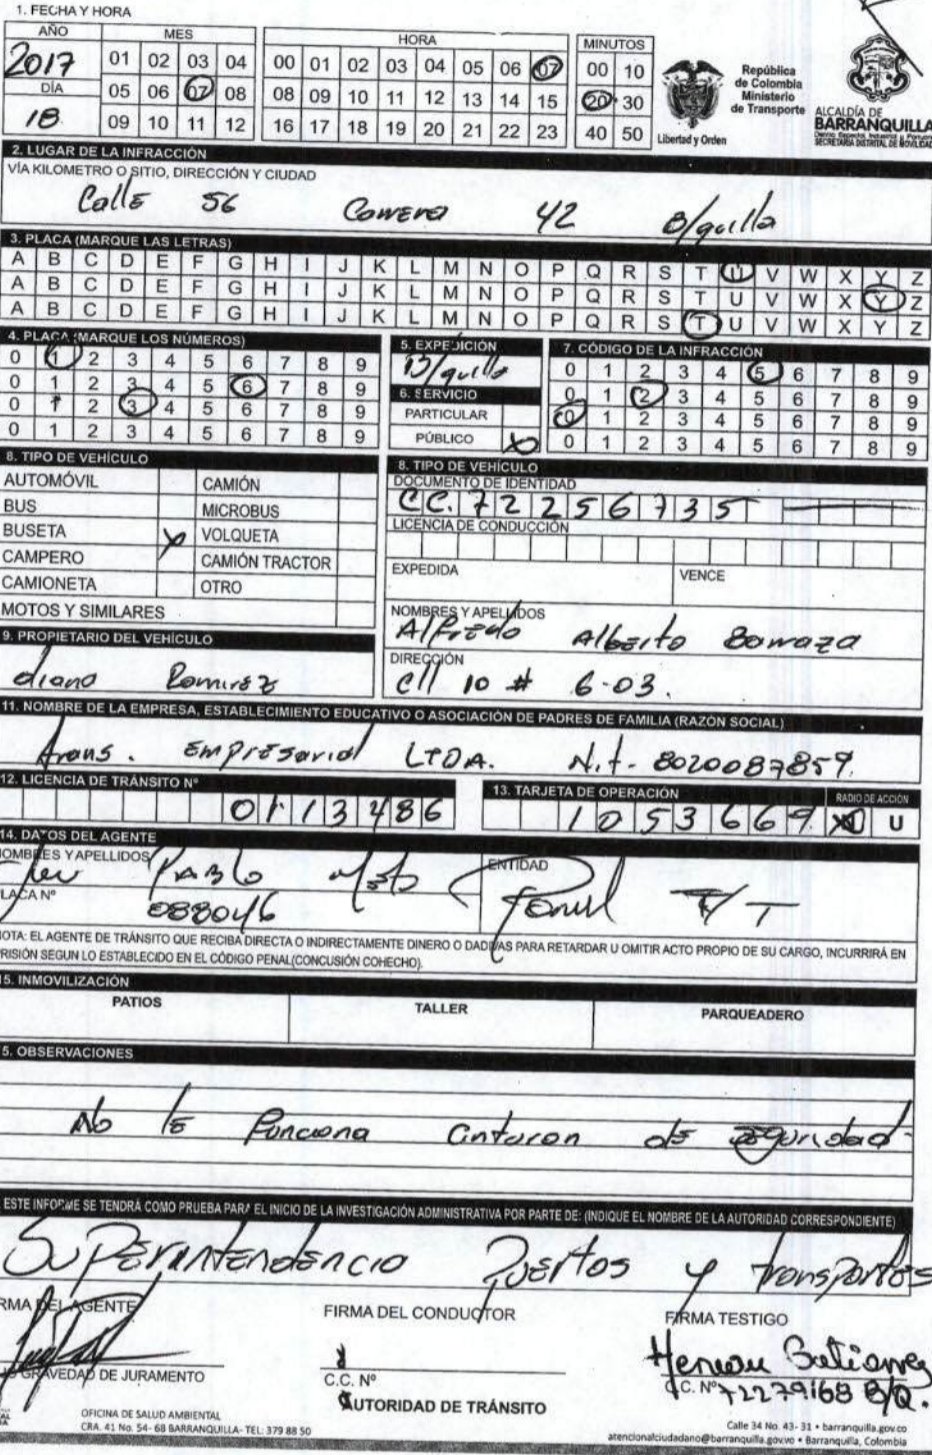 1. FECHA Y HORA
AÑO MES HORA MINUTOS
2017 01 02 03 04 00 01 02 03 04 05 06 07 00 10
DÍA 05 06 07 08 08 09 10 11 12 13 14 15 20 30
18 09 10 11 12 16 17 18 19 20 21 22 23 40 50
Libertad y Orden
República
de Colombia
Ministerio
de Transporte
ALCALDÍA DE
BARRANQUILLA
SECRETARÍA DISTRITAL DE MOVILIDAD
2. LUGAR DE LA INFRACCIÓN
VÍA KILOMETRO O SITIO, DIRECCIÓN Y CIUDAD
Calle 56 Carrera 42 B/quilla
3. PLACA (MARQUE LAS LETRAS)
A B C D E F G H I J K L M N O P Q R S T U V W X Y Z
A B C D E F G H I J K L M N O P Q R S T U V W X Y Z
A B C D E F G H I J K L M N O P Q R S T U V W X Y Z
4. PLACA (MARQUE LOS NÚMEROS) 5. EXPEDICIÓN 7. CÓDIGO DE LA INFRACCIÓN
0 1 2 3 4 5 6 7 8 9 B/quilla 0 1 2 3 4 5 6 7 8 9
0 1 2 3 4 5 6 7 8 9 6. SERVICIO 0 1 2 3 4 5 6 7 8 9
0 1 2 3 4 5 6 7 8 9 PARTICULAR 0 1 2 3 4 5 6 7 8 9
0 1 2 3 4 5 6 7 8 9 PÚBLICO X 0 1 2 3 4 5 6 7 8 9
8. TIPO DE VEHÍCULO
AUTOMÓVIL CAMIÓN
BUS MICROBUS
BUSETA X VOLQUETA
CAMPERO CAMIÓN TRACTOR
CAMIONETA OTRO
MOTOS Y SIMILARES
8. TIPO DE VEHÍCULO
DOCUMENTO DE IDENTIDAD
CC. 72256735
LICENCIA DE CONDUCCIÓN
EXPEDIDA VENCE
NOMBRES Y APELLIDOS
Alfredo Alberto Barraza
DIRECCIÓN
Cll 10 # 6-03.
9. PROPIETARIO DEL VEHÍCULO
diana Ramirez
11. NOMBRE DE LA EMPRESA, ESTABLECIMIENTO EDUCATIVO O ASOCIACIÓN DE PADRES DE FAMILIA (RAZÓN SOCIAL)
trans. Empresarial LTDA. Nit- 8020087859.
12. LICENCIA DE TRÁNSITO Nº 13. TARJETA DE OPERACIÓN RADIO DE ACCIÓN
01113486 1053669 U
14. DATOS DEL AGENTE
NOMBRES Y APELLIDOS ENTIDAD
PLACA Nº
088046
NOTA: EL AGENTE DE TRÁNSITO QUE RECIBA DIRECTA O INDIRECTAMENTE DINERO O DADIVAS PARA RETARDAR U OMITIR ACTO PROPIO DE SU CARGO, INCURRIRÁ EN
PRISIÓN SEGUN LO ESTABLECIDO EN EL CÓDIGO PENAL(CONCUSIÓN COHECHO).
15. INMOVILIZACIÓN
PATIOS TALLER PARQUEADERO
5. OBSERVACIONES
No le funciona Cinturon de Seguridad
ESTE INFORME SE TENDRÁ COMO PRUEBA PARA EL INICIO DE LA INVESTIGACIÓN ADMINISTRATIVA POR PARTE DE: (INDIQUE EL NOMBRE DE LA AUTORIDAD CORRESPONDIENTE)
Superintendencia Puertos y transportes
FIRMA DEL AGENTE FIRMA DEL CONDUCTOR FIRMA TESTIGO
GRAVEDAD DE JURAMENTO C.C. Nº C.C. Nº 72279168 B/Q.
AUTORIDAD DE TRÁNSITO
OFICINA DE SALUD AMBIENTAL
CRA. 41 No. 54- 68 BARRANQUILLA- TEL: 379 88 50
Calle 34 No. 43- 31 • barranquilla.gov.co
atencionalciudadano@barranquilla.gov.vo • Barranquilla, Colombia